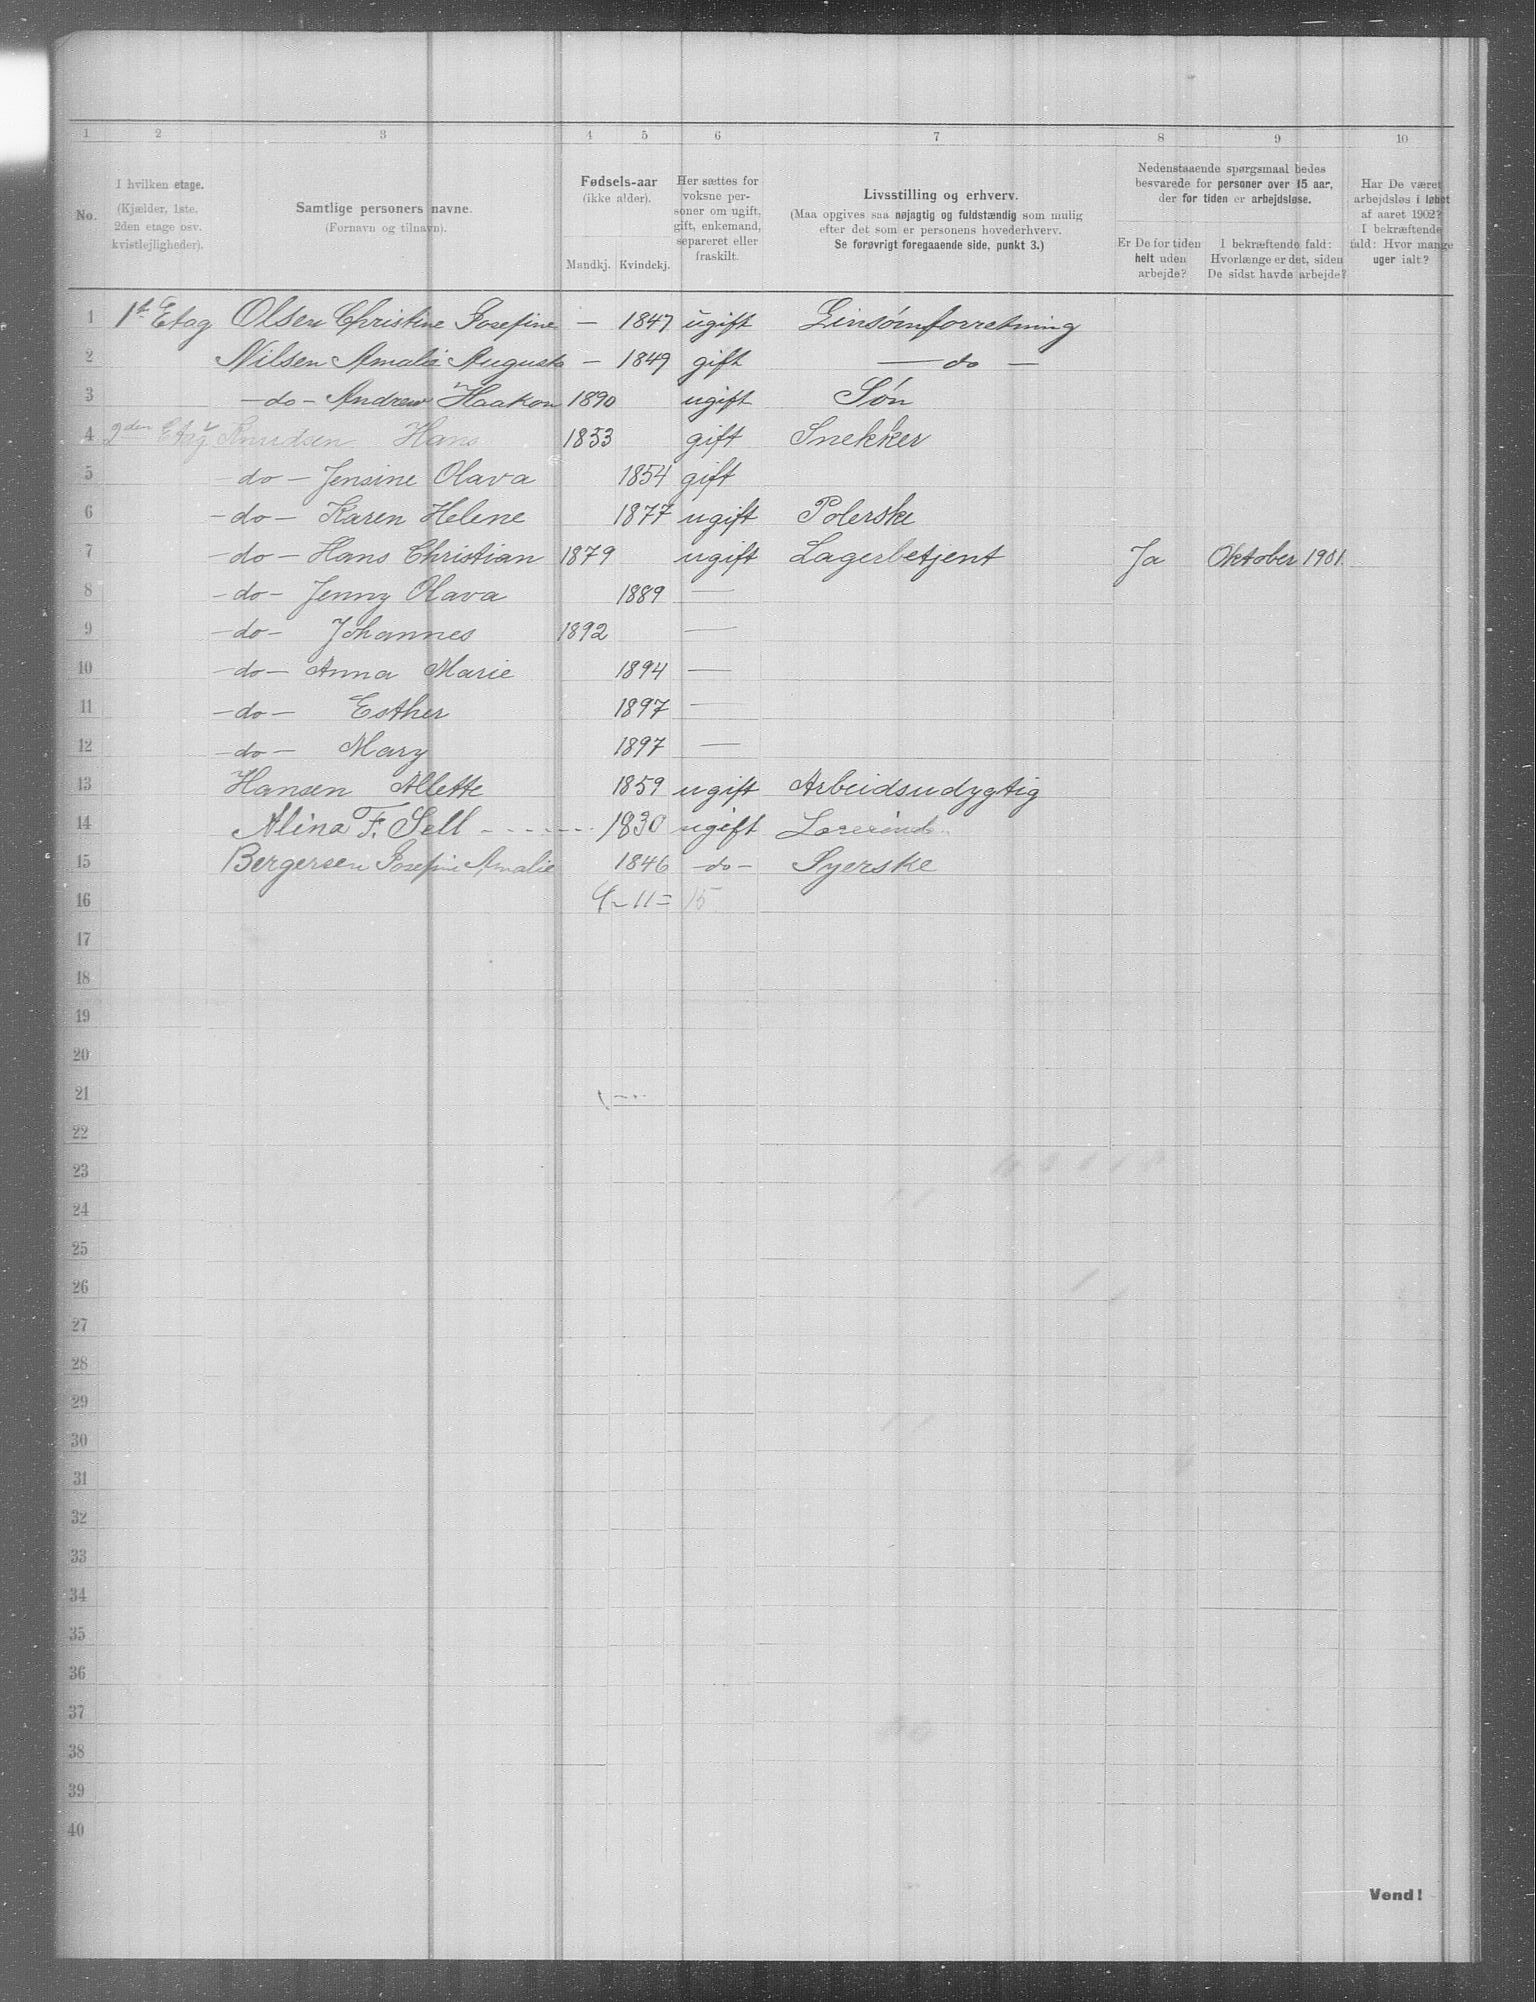 1 2 3 4 5 6 7 8 9 10
No.
I hvilken etage.
(Kjælder, 1ste.
2den etage osv.
kvistlejligheder).
Samtlige personers navne.
(Fornavn og tilnavn).
Fødsels-aar
(ikke alder).
Mandkj. Kvindekj.
Her sættes for
voksne per-
soner om ugift,
gift, enkemand,
separeret eller
fraskilt.
Livsstilling og erhverv.
(Maa opgives saa nøjagtig og fuldstændig som mulig
efter det som er personens hovederhverv.
Se forøvrigt foregaaende side, punkt 3.)
Nedenstaaende spørgsmaal bedes
besvarede for personer over 15 aar,
der for tiden er arbejdsløse.
Er De for tiden
helt uden
arbejde?
I bekræftende fald:
Hvorlænge er det, siden
De sidst havde arbejde?
Har De været
arbejdsløs i løbet
af aaret 1902?
I bekræftende
fald: Hvor mange
uger ialt?
1 1st Etag Olsen Christine Josefine — 1847 ugift Linsømforretning
2 Nilsen Amalia Augusta — 1849 gift — do —
3 — do — Andrew Haakon 1890 ugift Søn
4 2den Etag Knudsen Hans 1853 gift Snekker
5 — do — Jensine Olava 1854 gift
6 — do — Karen Helene 1877 ugift Polerske
7 — do — Hans Christian 1879 ugift Lagerbetjent Ja Oktober 1901.
8 — do — Jenny Olava 1889 —
9 — do — Johannes 1892 —
10 — do — Anna Marie 1894 —
11 — do — Esther 1897 —
12 — do — Mary 1897 —
13 Hansen Allette 1859 ugift Arbeidsudygtig
14 Alina F. Sell - - - - - - 1830 ugift
15 Bergersen Josefine Amalie 1846 — do — Syerske
16 4 – 11 = 15
17
18
19
20
21
22
23
24
25
26
27
28
29
30
31
32
33
34
35
36
37
38
39
40
Vend!